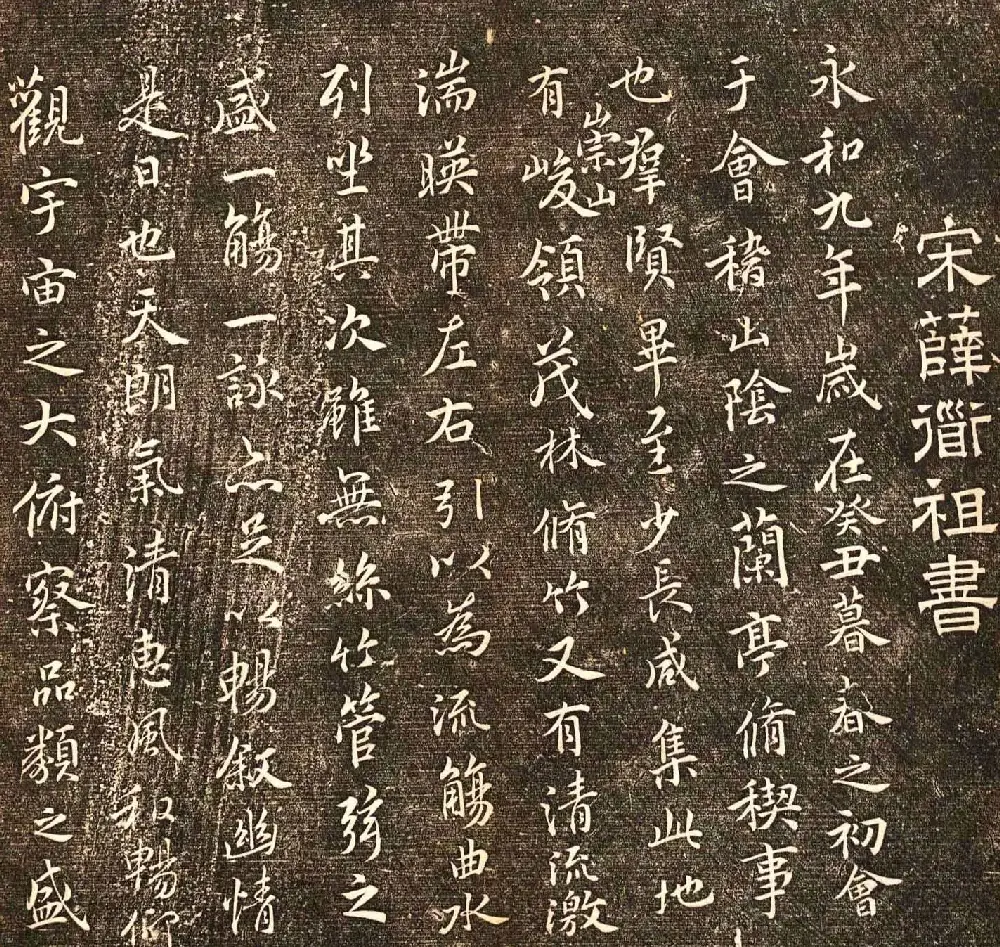 宋薛衜祖書
永和九年歲在癸丑暮春之初會
于會稽山陰之蘭亭脩稧事
也羣賢畢至少長咸集此地
有崇山峻領茂林脩竹又有清流激
湍暎帶左右引以為流觴曲水
列坐其次雖無絲竹管弦之
盛一觴一詠亦足以暢敘幽情
是日也天朗氣清惠風和暢仰
觀宇宙之大俯察品類之盛